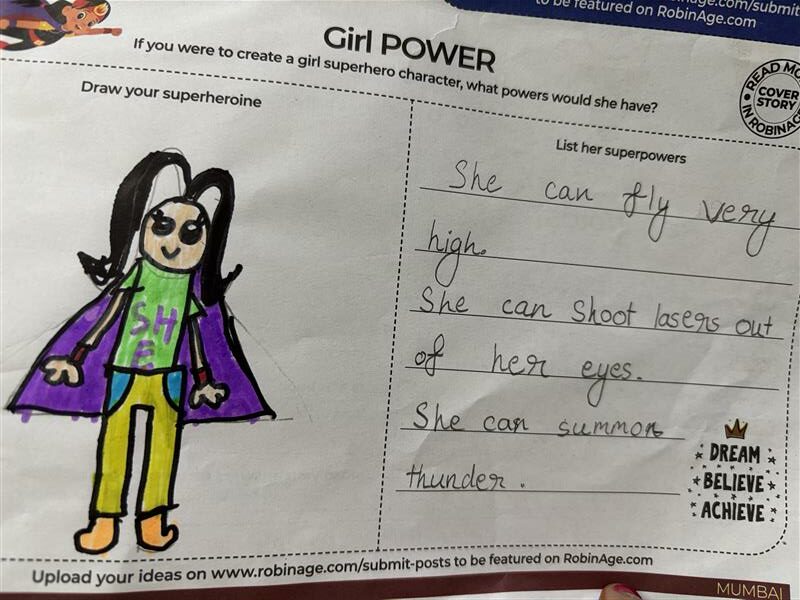 to be featured on RobinAge.com
Girl POWER
If you were to create a girl superhero character, what powers would she have?
READ MO
COVER
STORY
IN ROBINAG
Draw your superheroine
List her superpowers
SH
E
She can fly very
high.
She can shoot lasers out
of her eyes.
She can summon
thunder.
DREAM
BELIEVE
ACHIEVE
Upload your ideas on www.robinage.com/submit-posts to be featured on RobinAge.com
MUMBAI